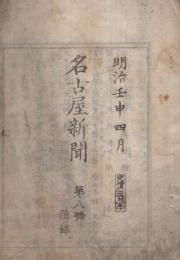 明治壬申四月
名古屋新聞
第八號
附録